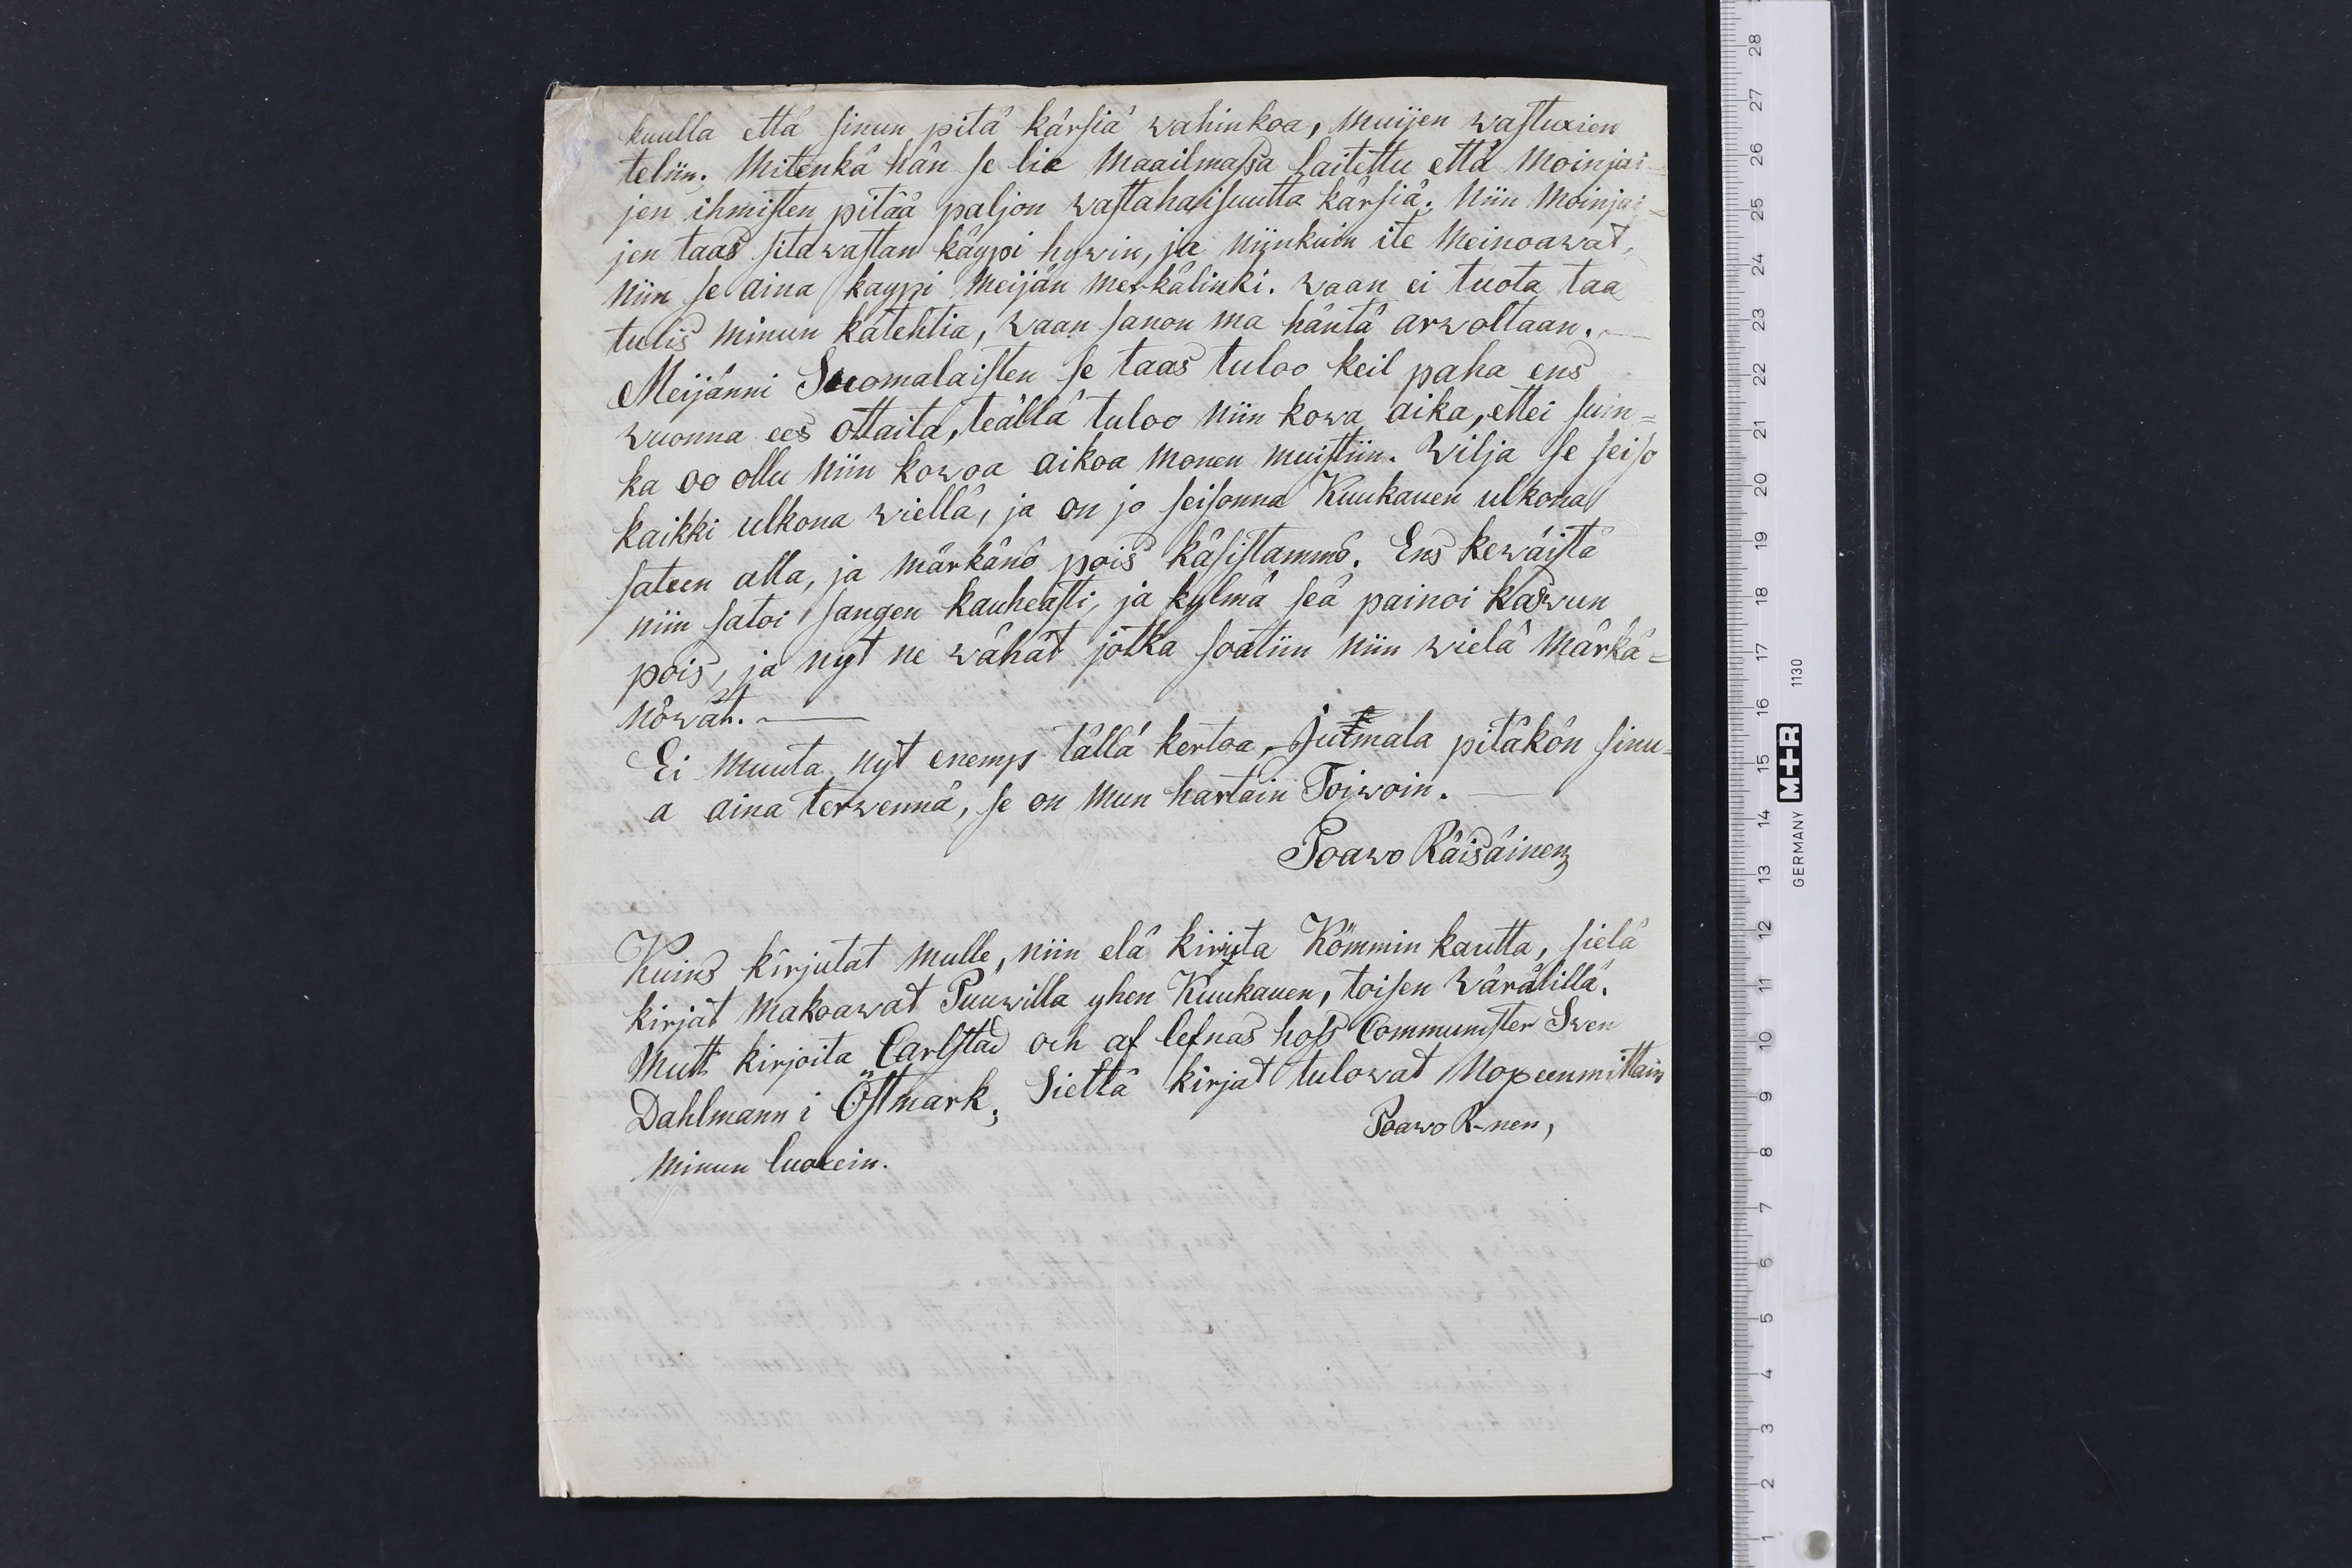 kuulla että sinun pitä kärsiä wahinkoa, muijen wastuxien
teliin. Mitenkä hän se lie maailmassa laitettu että moinjai-
jen ihmisten pitää paljon wastahaisuutta kärsiä. Niin moinjai=
jen taas sitawastan käypi hywin, ja niinkuin ite meinoawat,
niin se aina kaypi meijän merkälinki. waan ei tuota taa
tulis minun katehtia, waan sanon ma häntä arwoltaan. —
Meijänni Suomalaisten se taas tuloo keil paha ens
wuonna ees ottaita, teällä tuloo niin kowa aika, ettei suin=
ka oo ollu niin kowoa aikoa monen muistiin. Wilja se seiso
kaikki ulkona wiellä, ja on jo seisonna Kuukauen ulkona
sateen alla, ja märkänö pois käsistammö. Ens kewäistä
niin satoi sangen kauheasti, ja kylmä seä painoi kaswun
pois, ja nyt ne wähät jotka soatiin niin wielä märkä=
nöwät. —
Ei muuta nyt enemp tällä kertoa, Jumala pitäkön sinu=
a aina terwennä, se on mun hartain Toiwoin. —
Poawo Räisäinen
Kuins kirjutat mulle, niin elä kirjuta Kömmin kautta, sielä
kirjät makoawat Puuwilla yhen Kuukauen, toisen Wärälillä.
Mutt kirjoita Carlstad och af lefnas hoss Communister Swen
Dahlmann i Östmark; Sieltä kirjat tulowat Nopeenmittain
Poawo R-nen,
minun luoxein.